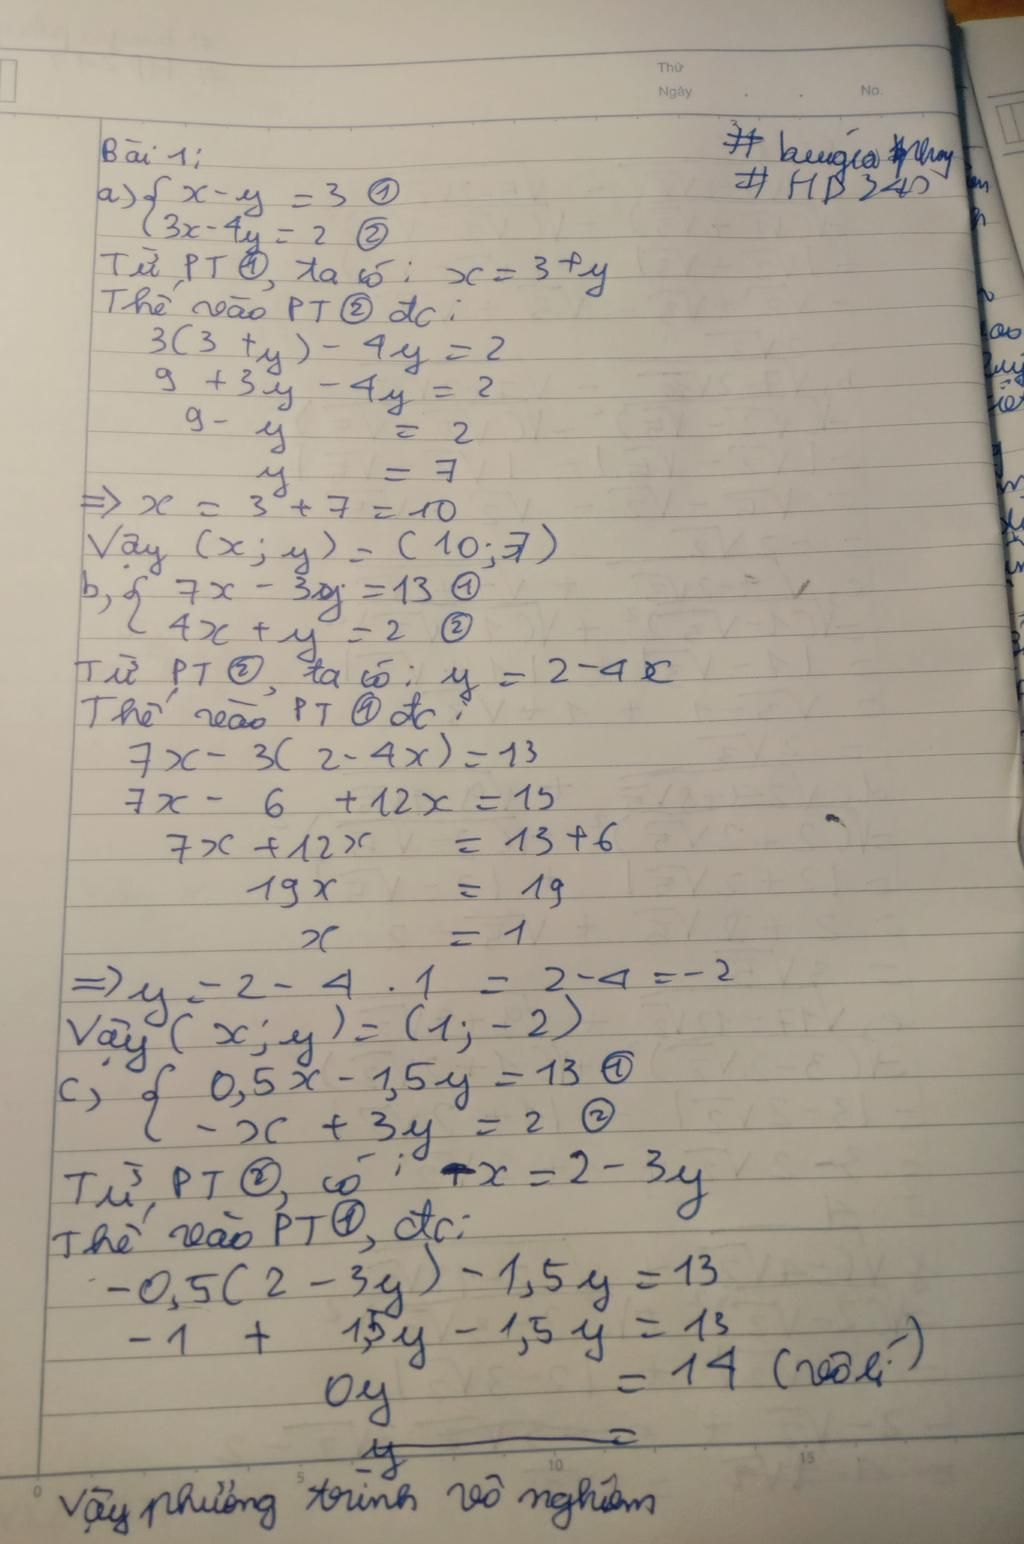 Thứ
Ngày . . No.
Bài 1:
# HB 340
a) { x - y = 3 ①
3x - 4y = 2 ②
Từ PT ①, ta có: x = 3 + y
Thế vào PT ② đc:
3(3 + y) - 4y = 2
9 + 3y - 4y = 2
9 - y = 2
y = 7
=> x = 3 + 7 = 10
Vậy (x; y) = (10; 7)
b, { 7x - 3y = 13 ①
4x + y = 2 ②
Từ PT ②, ta có: y = 2 - 4x
Thế vào PT ① đc:
7x - 3(2 - 4x) = 13
7x - 6 + 12x = 13
7x + 12x = 13 + 6
19x = 19
x = 1
=> y = 2 - 4 . 1 = 2 - 4 = -2
Vậy (x; y) = (1; -2)
c, { 0,5x - 1,5y = 13 ①
- x + 3y = 2 ②
Từ PT ②, có: -x = 2 - 3y
Thế vào PT ①, đc:
-0,5(2 - 3y) - 1,5y = 13
-1 + 1,5y - 1,5y = 13
0y = 14 (vô lí)
y =
0 5 10 15
Vậy phương trình vô nghiệm